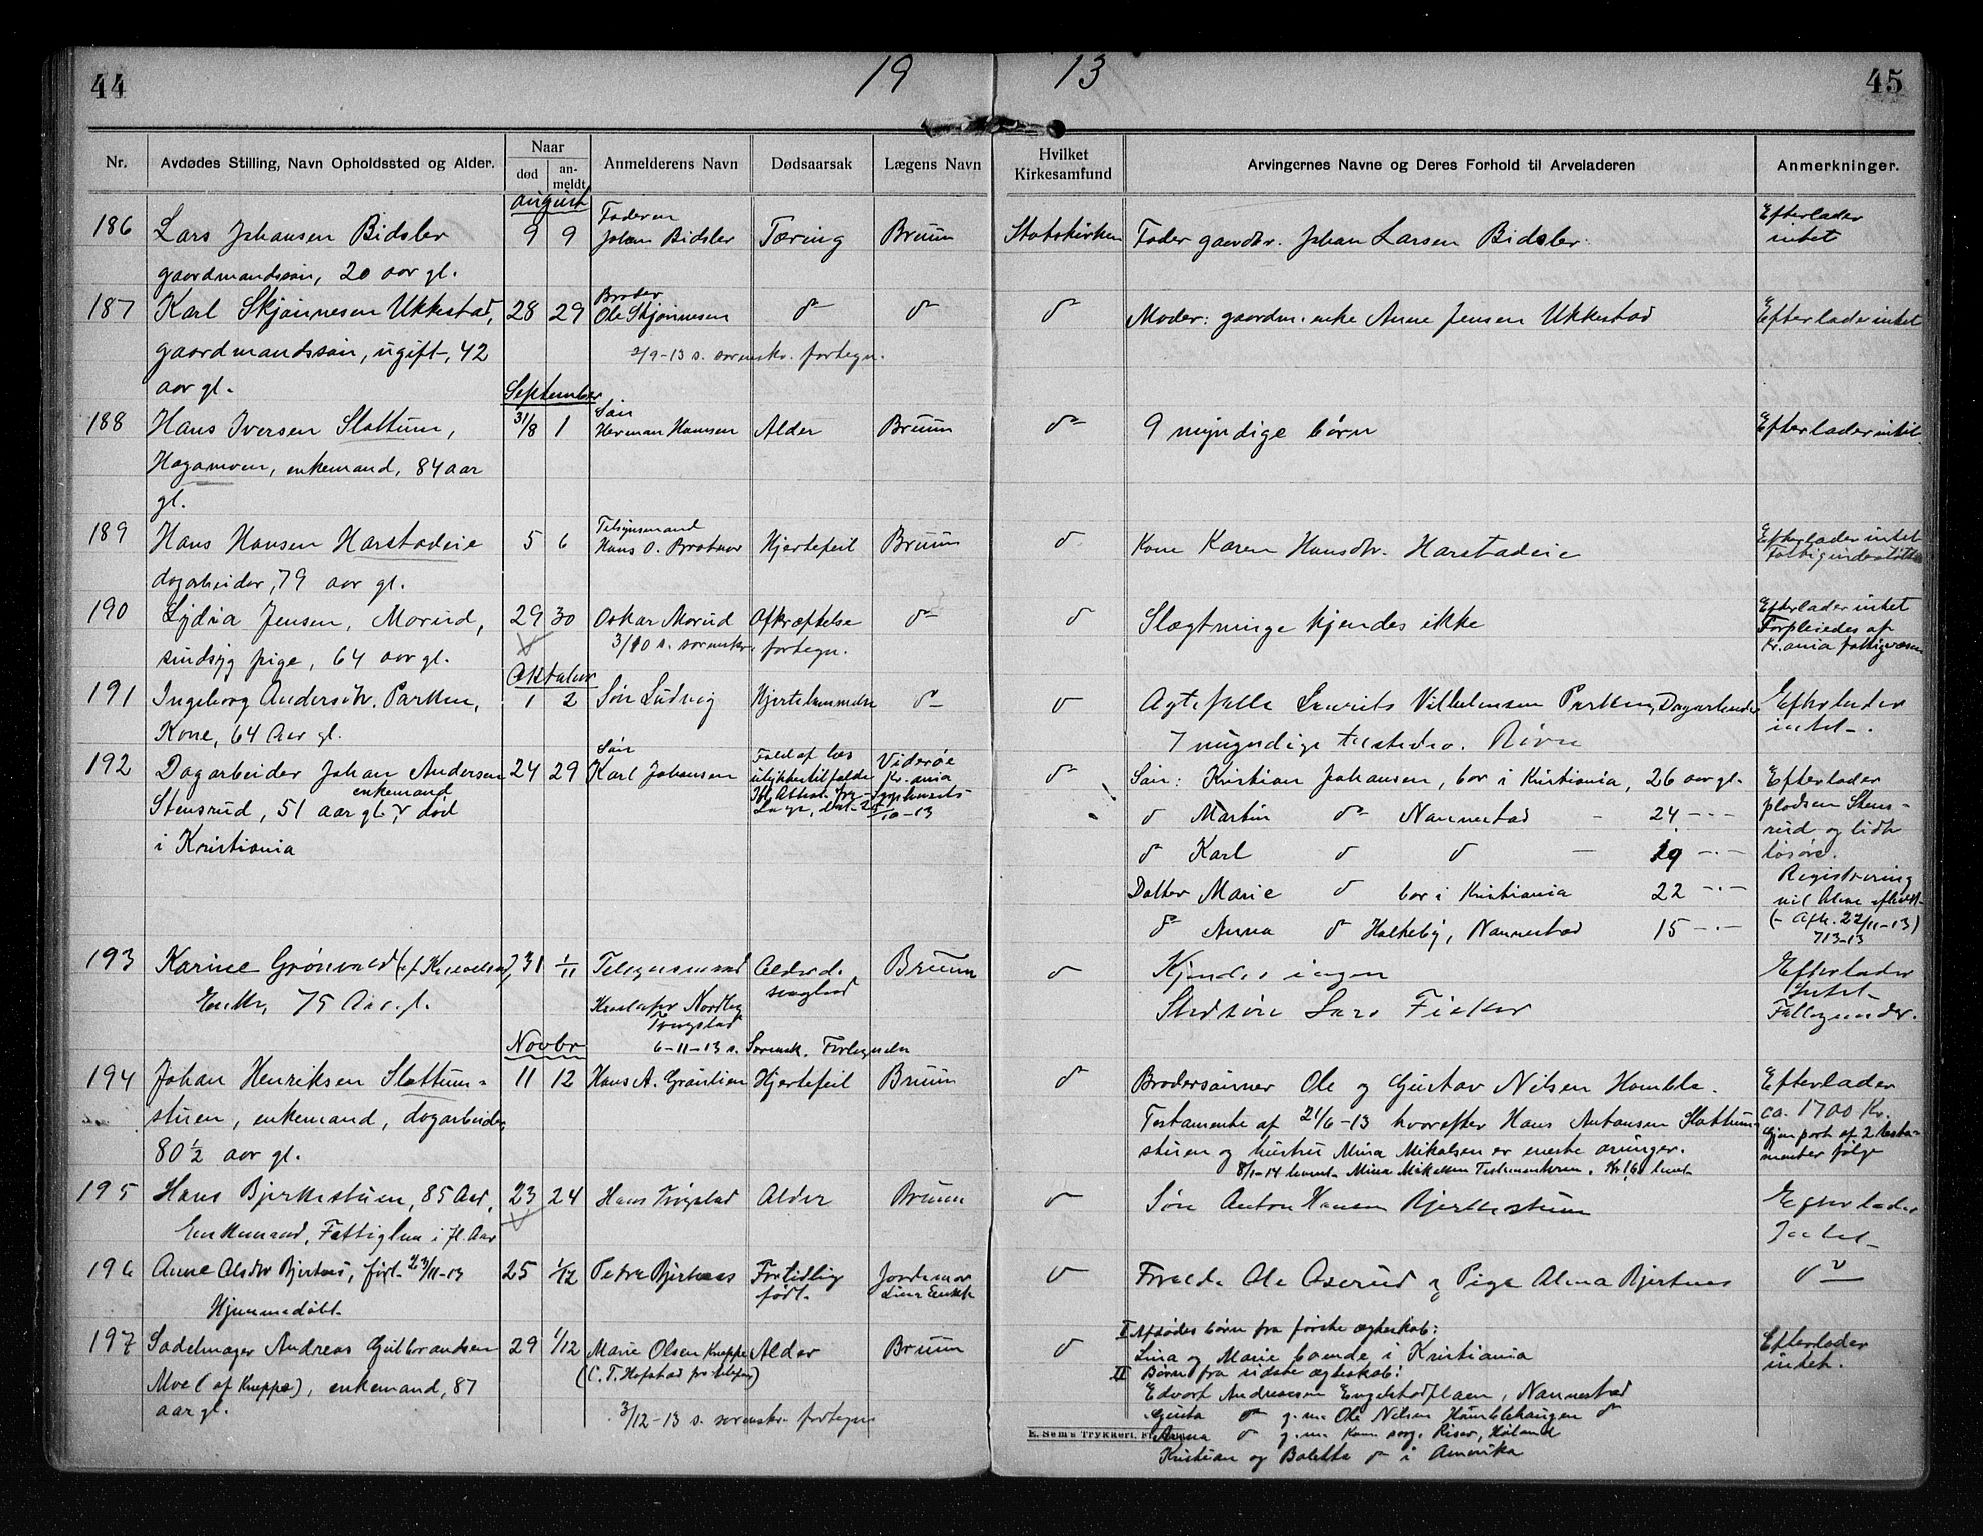 44 19 13 45
Nr. Avdødes Stilling, Navn Opholdssted og Alder. Naar Anmelderens Navn Dødsaarsak Lægens Navn Hvilket Kirkesamfund Arvingernes Navne og Deres Forhold til Arveladeren Anmerkninger.
død anmeldt
august
186 Lars Johansen Bidsler 9 9 Faderen Johan Bidsler Tæring Bruun Statskirken Fader gaardbr. Johan Larsen Bidsler. Efterlader intet
gaardmandssøn, 20 aar gl.
187 Karl Skjønnesen Ukkestad, 28 29 Broder Ole Skjønnesen do do do Moder: gaardm. enke Anne Jensen Ukkestad Efterlader intet
gaardmandssøn, ugift, 42 2/9-13 s. sorenskr. fortegn.
aar gl.
September
188 Hans Iversen Slattum, 31/8 1 Søn Herman Hansen Alder Bruun do 9 myndige børn Efterlader intet
Hagamoen, enkemand, 84 aar
gl.
189 Hans Hansen Harstadeie 5 6 Tilsynsmand Hans O. Brotnov Hjertefeil Bruun do Kone Karen Hansdtr. Harstadeie Efterlader intet
dagarbeider, 79 aar gl. Fattigunderstøttet
190 Lydia Jensen, Morud, 29 30 Oskar Morud Afkræftelse do do Slægtninge kjendes ikke Efterlader intet
sindsyg pige, 64 aar gl. 3/10 s. sorenskr. fortegn. Forpleiedes af
Kr.ania fattigvæsen
Oktober
191 Ingeborg Andersdtr. Parken, 1 2 Søn Ludvig Hjertelammelse do do Agtefelle Laurits Vilhelmsen Parken, Dagarbeider Efterlader
Kone, 64 Aar gl. 7 myndige tilstedev. Børn intet.
192 Dagarbeider Johan Andersen 24 29 Søn Karl Johansen Fald af læs Viderøe do Søn: Kristian Johansen, bor i Kristiania, 26 aar gl. Efterlader
enkemand ulykkestilfælde Kr.ania
Stensrud, 51 aar gl., død do Martin do Nannestad - 24 -"- pladsen Stensrud og lidt
i Kristiania do Karl do do - 19 -"- løsøre.
Datter Marie do bor i Kristiania 22 -"- Registrering
do Anna do Holkeby, Nannestad 15 -"- (- Afh. 22/11-13)
713-13
193 Karine Grønvold (f. Knevelsrud) 31 1/11 Tilsynsmand Alderd. Bruun do Kjendes ingen Efterlader
Enke, 75 Aar gl. svaghed Stedsøn Lars Fieker Intet
Nordby Trugstad
Novbr 6-11-13 s. Sorensk. Fortegnelse
194 Johan Henriksen Slattum- 11 12 Hans A. Grønlien Hjertefeil Bruun do Brodersønner Ole og Gustav Nilsen Homble. Efterlader
stuen, enkemand, dagarbeider, Testamente af 21/6-13 hvorefter Hans Antonsen Slattum- ca. 1700 Kr.
80 1/2 aar gl. stuen og hustru Mina Mikalsen er eneste arvinger. Gjenpart af 2 testamenter følge
8/1-14 levert Mina Mikalsen Testamenteren. Kr. 16 levert
195 Hans Bjerkestuen, 85 Aar, 23 24 Hans Trøgstad Alder Bruun do Søn Anton Hansen Bjerkestuen Efterlader
Enkemand, Fattiglem i fl. Aar Intet
196 Anne Olsdtr Bjertnes, født 23/11-13 25 1/12 Petra Bjertnes Fortidlig født. Jordemor do Forældr. Ole Aaserud og Pige Alma Bjertnes do
Hjemmedøbt.
197 Sadelmager Andreas Gulbrandsen 29 1/12 Marie Olsen Kneppe Alder Bruun do I Afdødes børn fra første ægteskab: Efterlader
Moe (af Kneppe), enkemand, 87 (C. T. Hofstad pr telefon) Lina og Marie boende i Kristiania intet.
aar gl. 3/12-13 s. sorenskr. fortegn. II Børn fra sidste ægteskab:
Edvart Andreassen Engelstadplaen, Nannestad
Gusta do g.m. Ole Nilsen Homblehaugen do
E. Sems Trykkeri, Anna do g.m. Kom. sorg. Riser, Høland
Kristian og Boletta do i Amerika